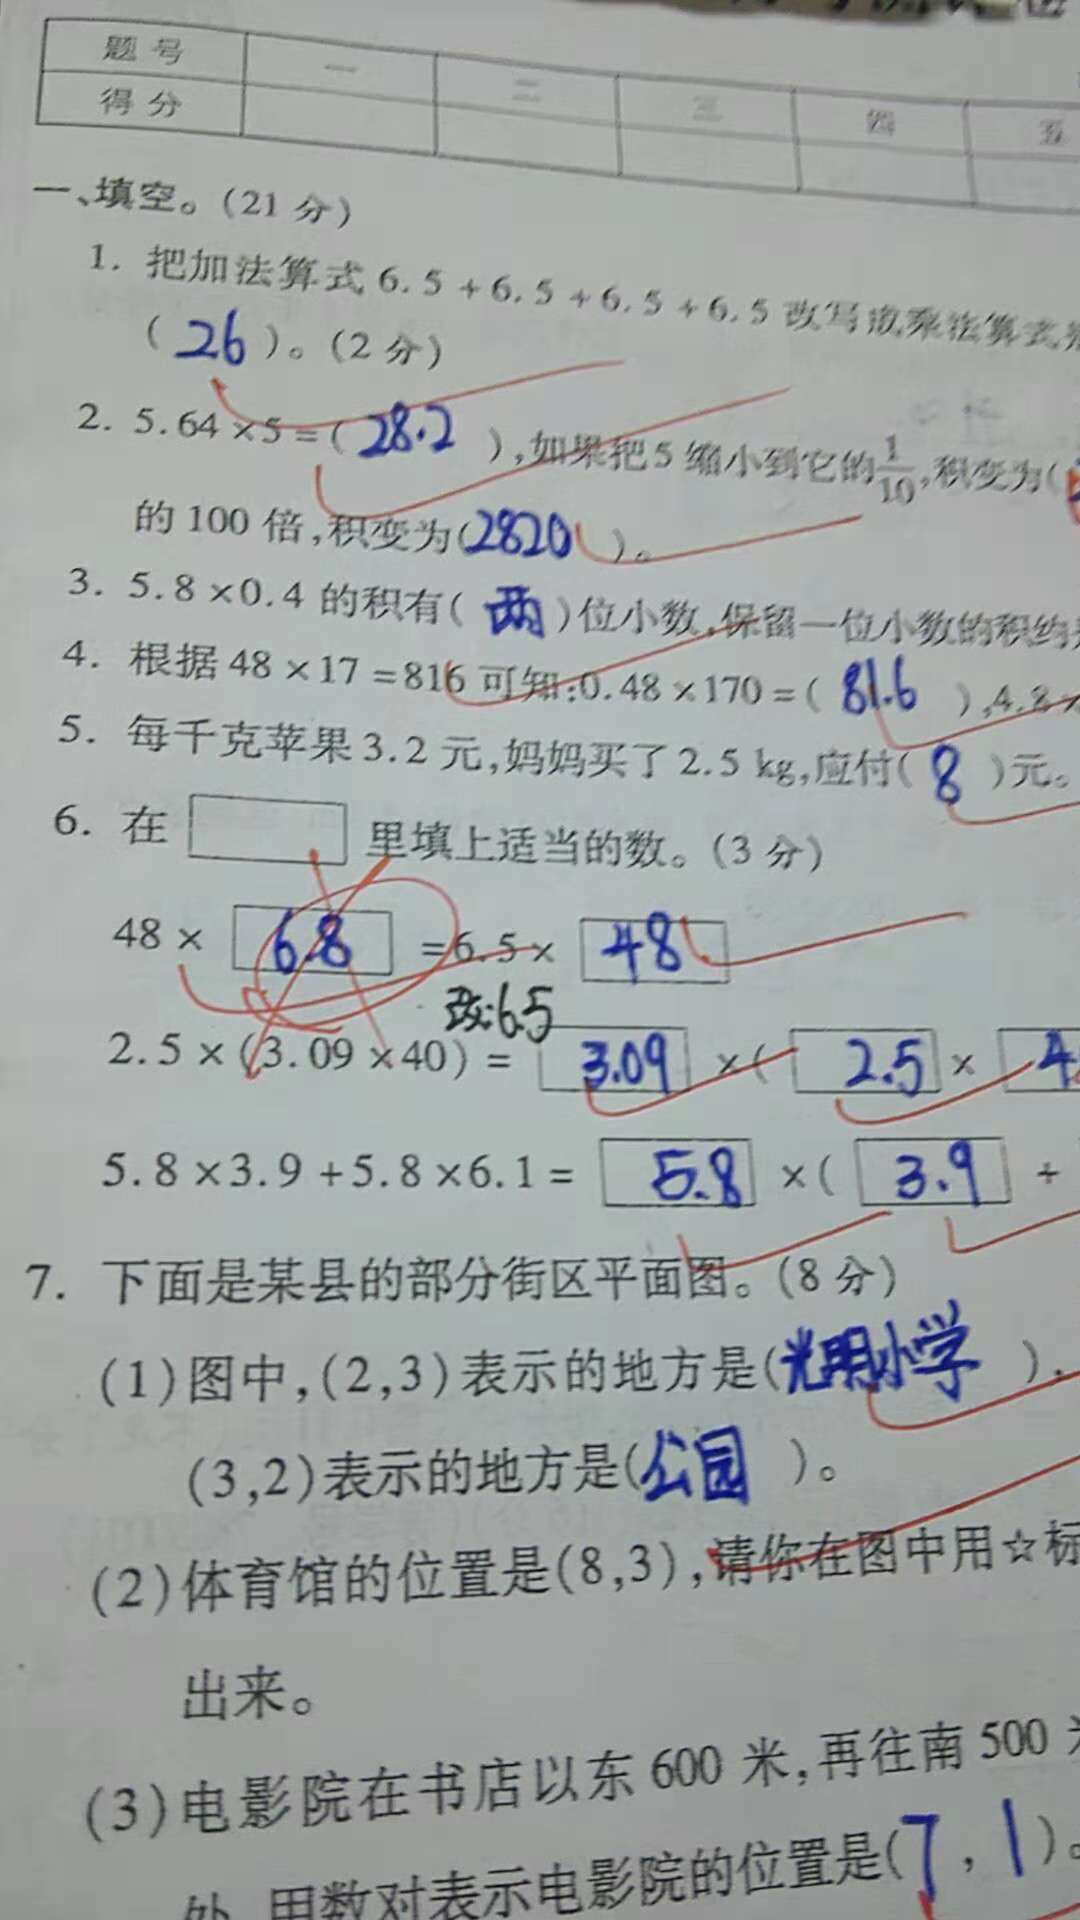 题号 一 二 三 四 五
得分
一、填空。(21分)
1. 把加法算式 6.5+6.5+6.5+6.5 改写成乘法算式
(26)。(2分)
2. 5.64×5=(28.2),如果把5缩小到它的1/10,积变为(
的100倍,积变为(2820)。
3. 5.8×0.4 的积有(两)位小数,保留一位小数的积约
4. 根据 48×17=816 可知:0.48×170=(81.6),4.8×
5. 每千克苹果3.2元,妈妈买了2.5 kg,应付(8)元。
6. 在 里填上适当的数。(3分)
48× 6.8 =6.5× 48
改:6.5
2.5×(3.09×40)= 3.09 ×( 2.5 × 4
5.8×3.9+5.8×6.1= 5.8 ×( 3.9 +
7. 下面是某县的部分街区平面图。(8分)
(1)图中,(2,3)表示的地方是(光明小学),
(3,2)表示的地方是(公园)。
(2)体育馆的位置是(8,3),请你在图中用☆标
出来。
(3)电影院在书店以东600米,再往南500
处,用数对表示电影院的位置是(7,1)。